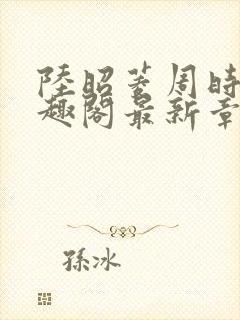 陸昭菱周時
趣閣最新章
孫冰